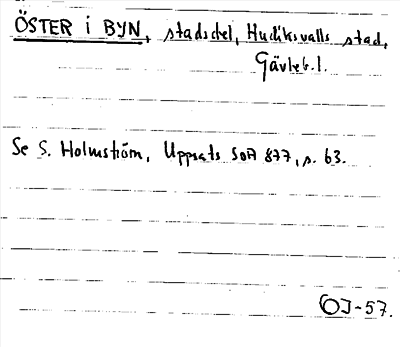 ÖSTER i BYN, stadsdel, Hudiksvalls stad,
Gävleb.l.
Se S. Holmström, Uppsats SOA 877, s. 63.
OJ-57.